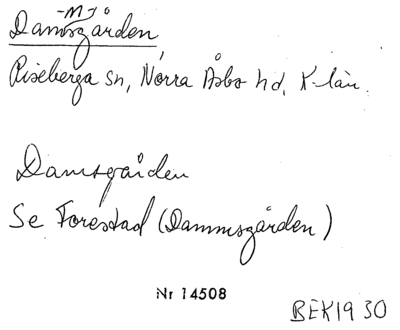 -M-
Dammsgården
Riseberga sn, Norra Åsbo hd, K-län.
Damsgården
Se Forestad (Dammsgården)
Nr 14508
BEK19 30